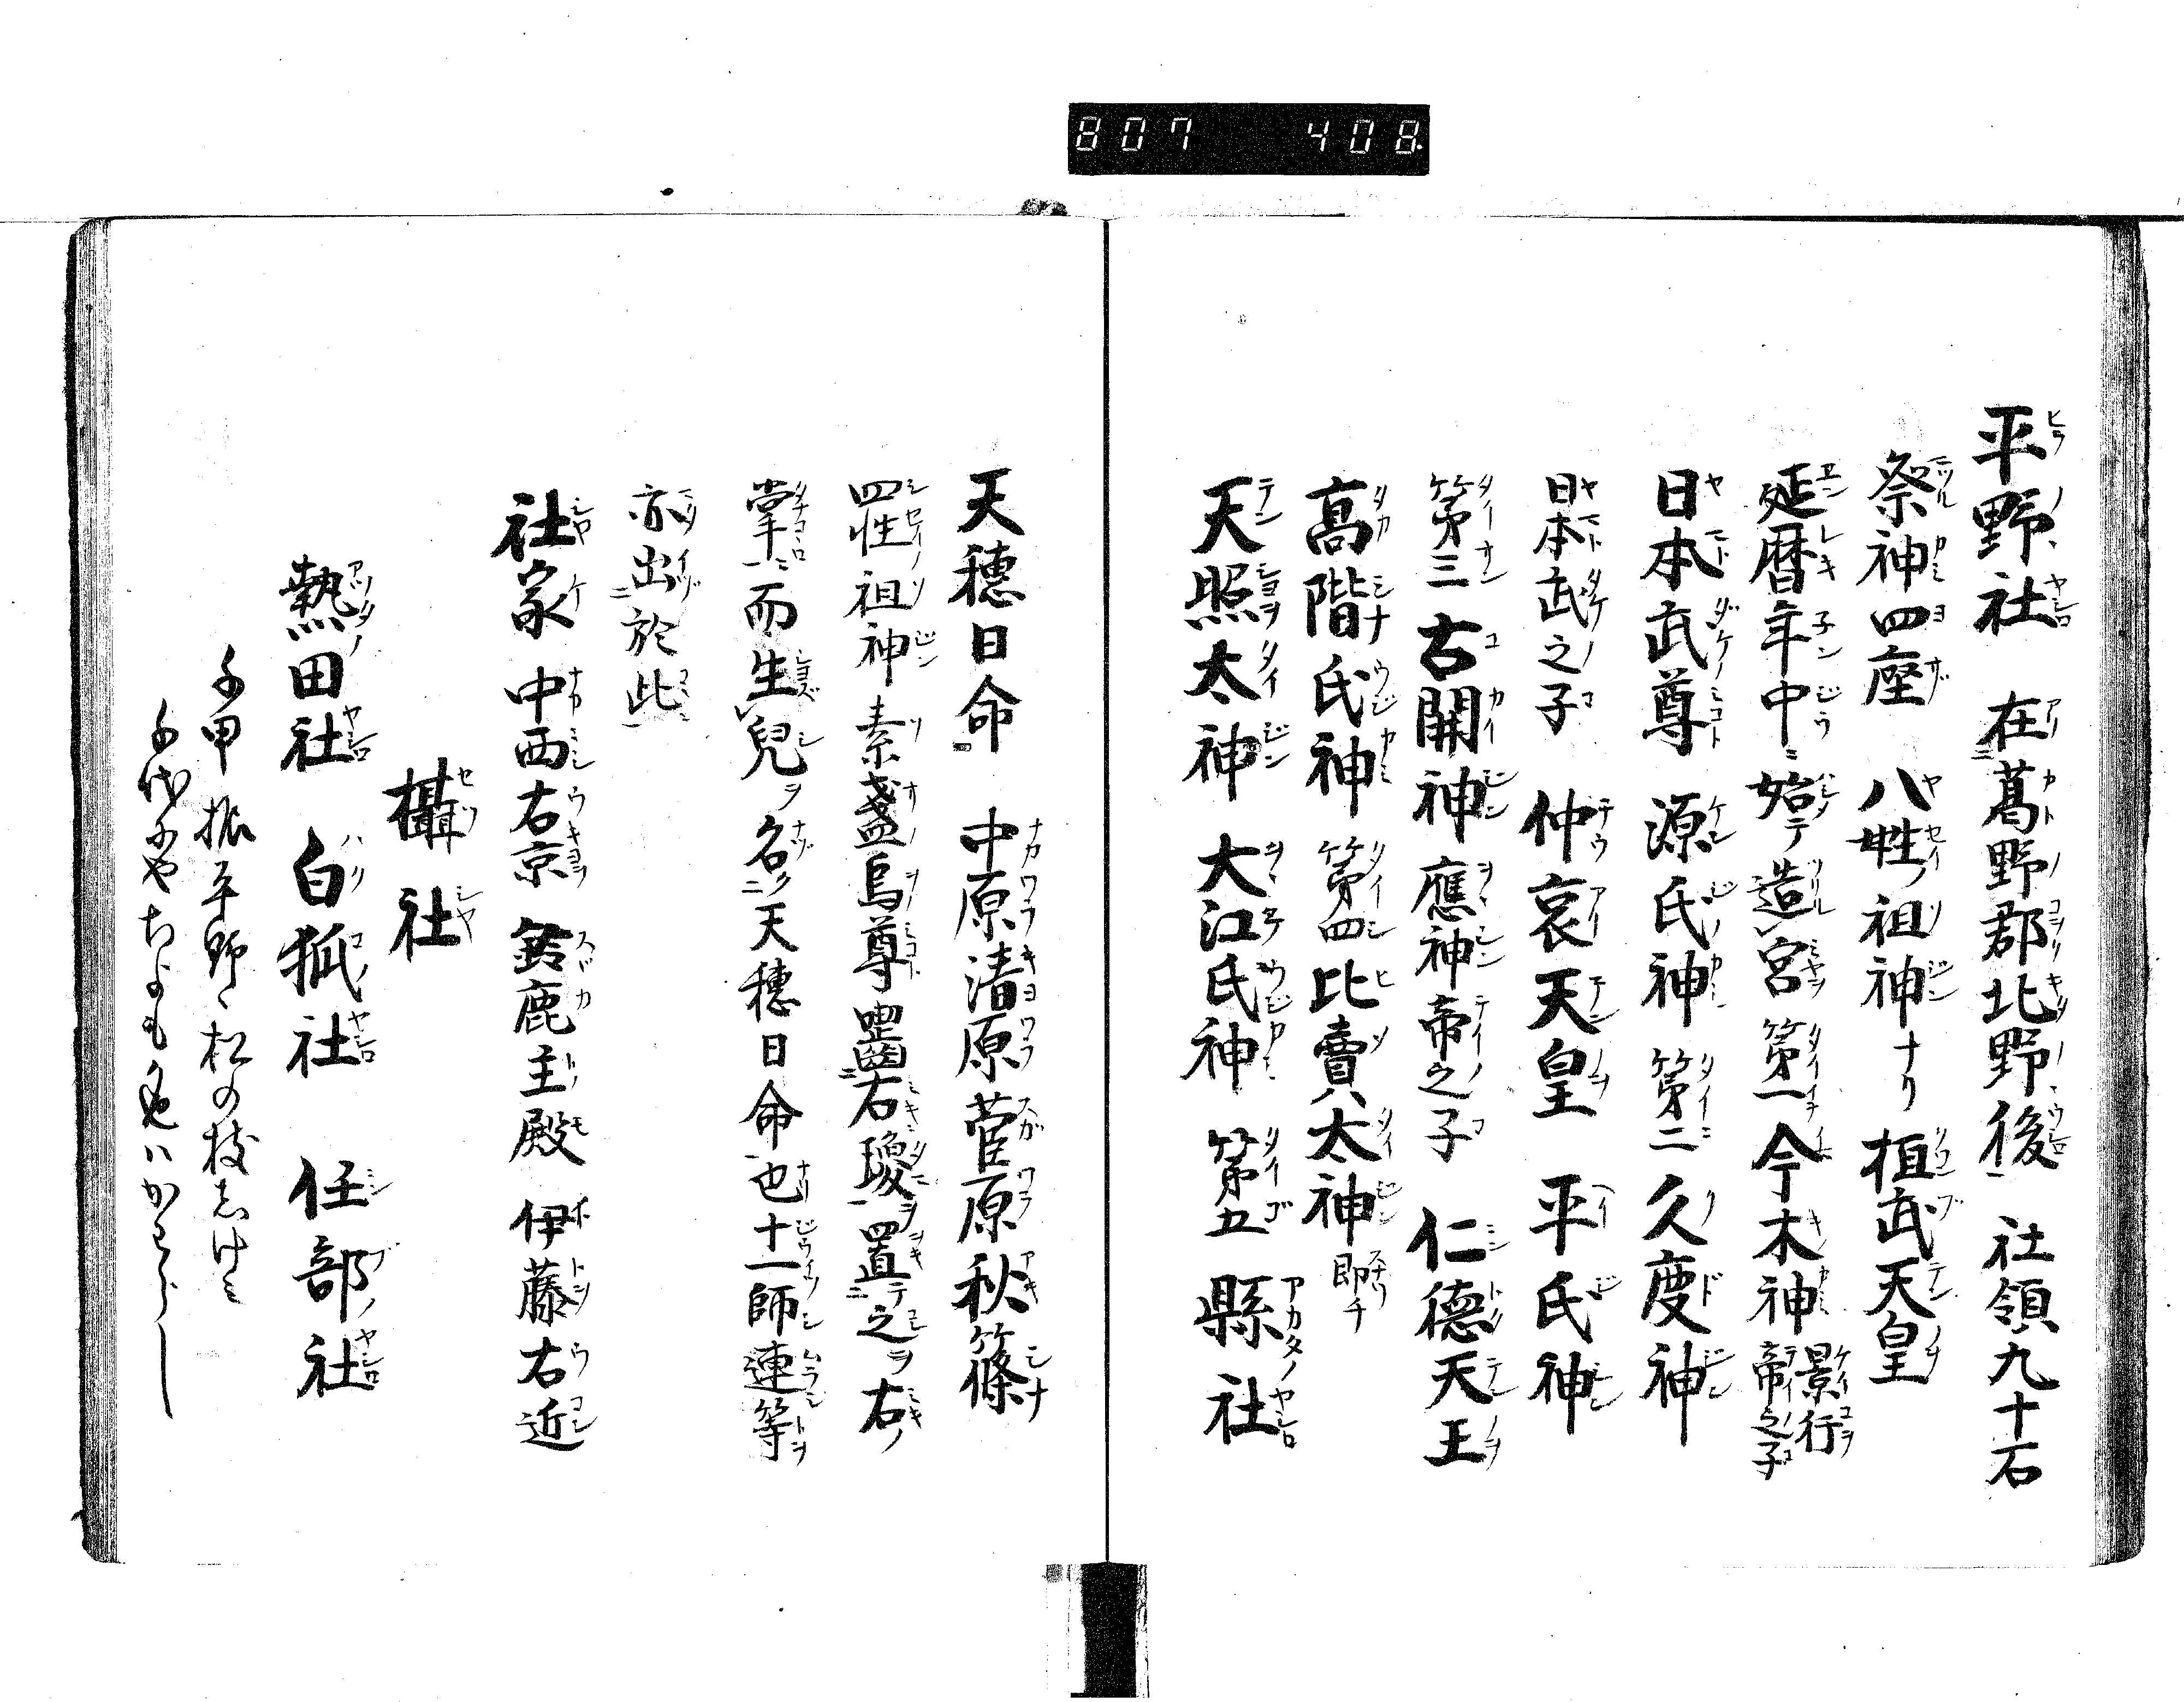 807 408
平野社 在葛野郡北野後 社領九十石
祭神四座 八姓祖神ナリ 桓武天皇
延暦年中ニ始テ造宮 第一今木神 景行帝之子
日本武尊 源氏神 第二久度神
日本武之子 仲哀天皇 平氏神
第三古開神 應神帝之子 仁徳天王
髙階氏神 第四比賣太神 即チ
天照太神 大江氏神 第五 縣社
天穂日命 中原清原菅原秋篠
四姓祖神 素盞烏尊嚙右瓊ヲ置テ之ヲ右ノ
掌ニ而生兒ヲ名ク天穂日命也十一師連等
亦出於此
社家 中西右京 鈴鹿主殿 伊藤右近
攝社
熱田社 白狐社 任部社
振平野ゝ松の枝しけミ
ちよも色ハかわらし